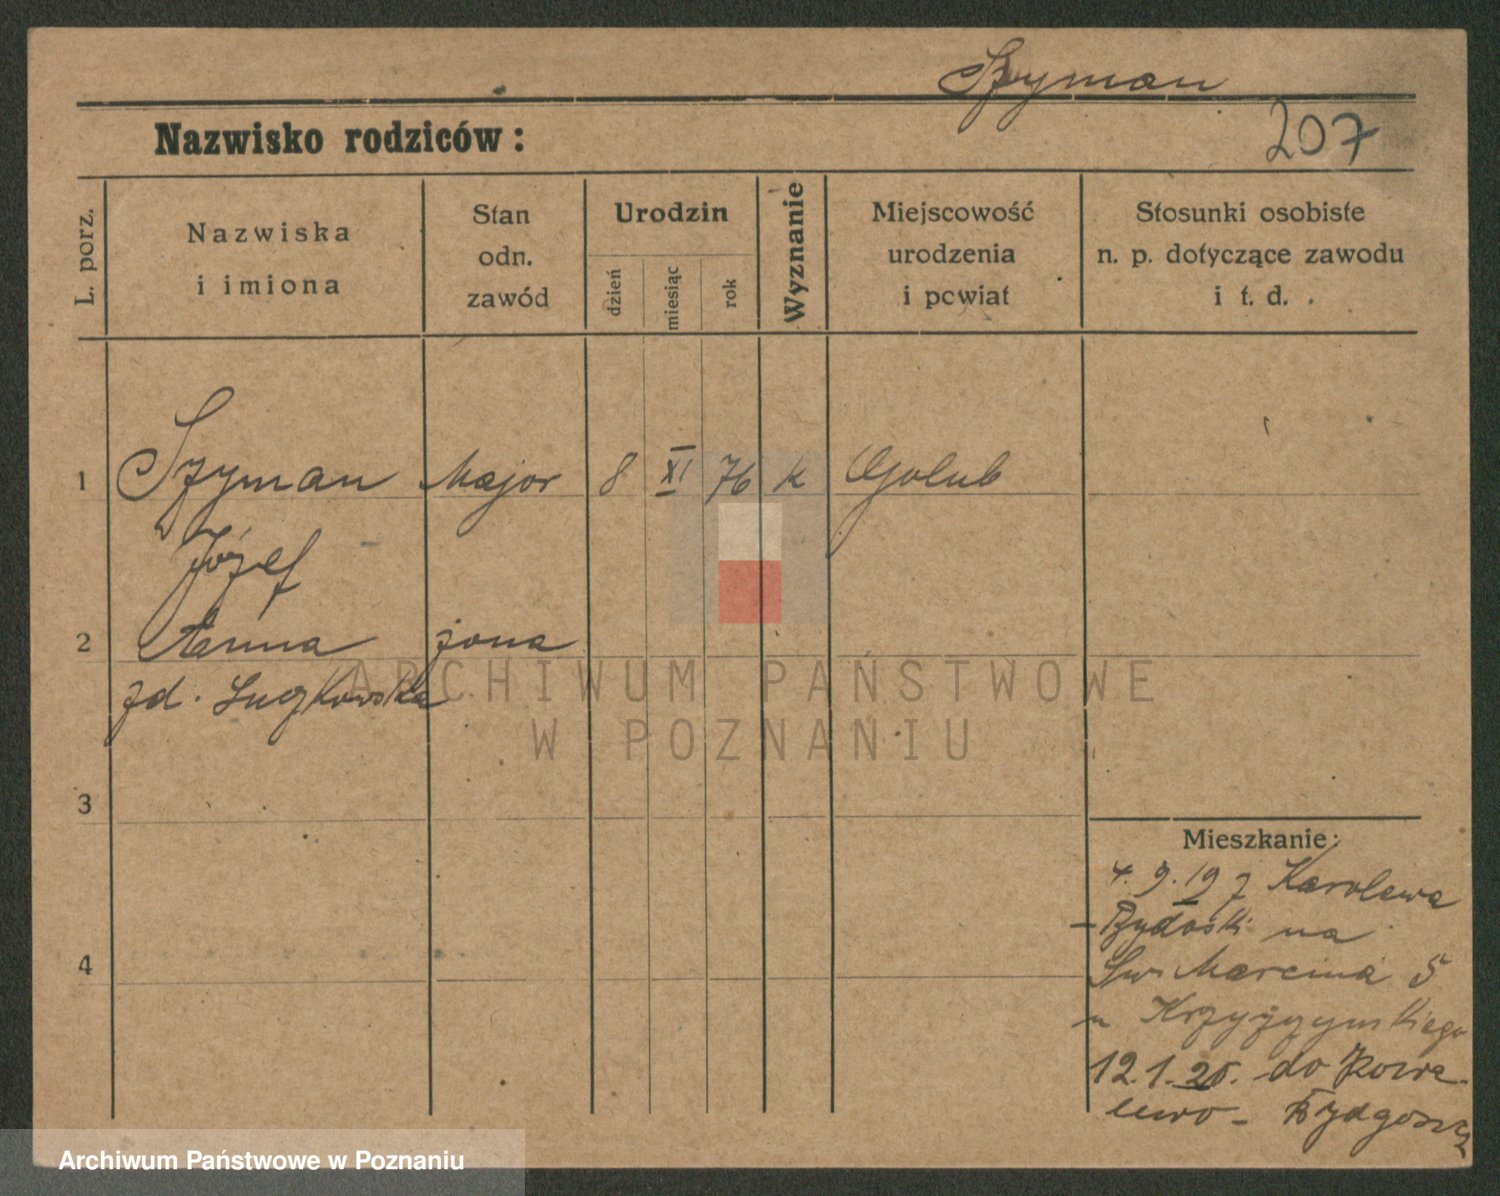 Szyman
Nazwisko rodziców:
207
L. porz.
Nazwiska
i imiona
Stan
odn.
zawód
Urodzin
dzień
miesiąc
rok
Wyznanie
Miejscowość
urodzenia
i powiat
Stosunki osobiste
n. p. dotyczące zawodu
i t. d.
1 Szyman Major 8 XI 76 k Golub
Józef
2 Anna żona
zd.
ARCHIWUM PAŃSTWOWE
W POZNANIU
3
Mieszkanie:
4. 9. 19 z Karolewa
- Bydoski na
4
Św Marcina 5
u Krzyżzymskiego
12.1.20. do Kowa-
lewo - Bydgoszcz
Archiwum Państwowe w Poznaniu